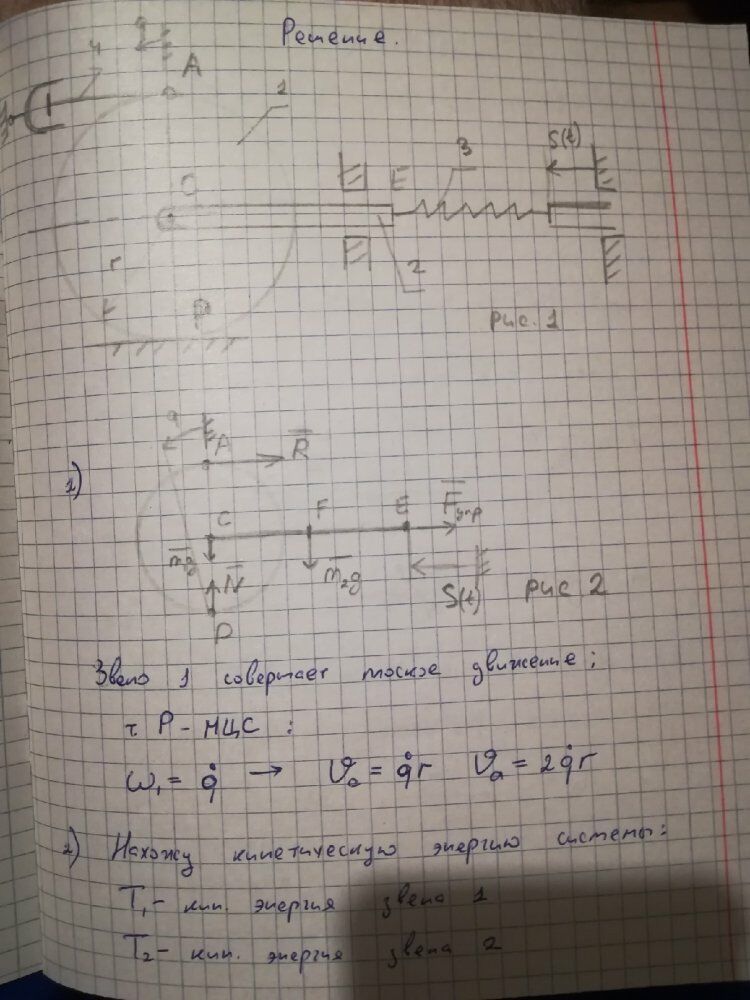 Решение.
q
4
A
1
3
S(t)
C
E
r
2
P
рис. 1
1)
q
A
R̅
C
F
E
F̅упр
m̅g
N̅
m̅₂g
S(t)
рис 2
P
Звено 1 совершает плоское движение;
т P - МЦС :
ω₁ = q̇ → υc = q̇r υa = 2q̇r
2) Нахожу кинетическую энергию системы:
T₁ - кин. энергия звена 1
T₂ - кин. энергия звена 2